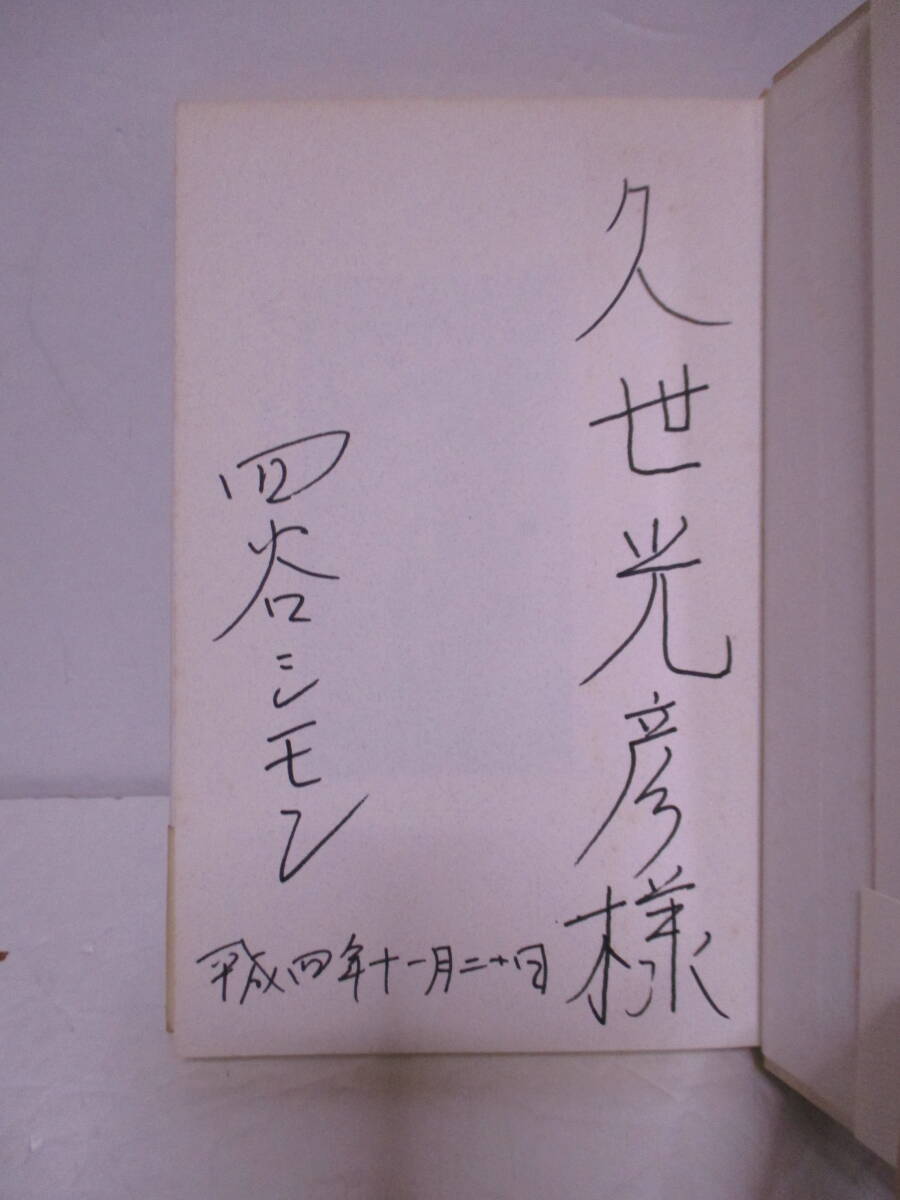 久世光彦様
四谷シモン
平成四年十一月二十日